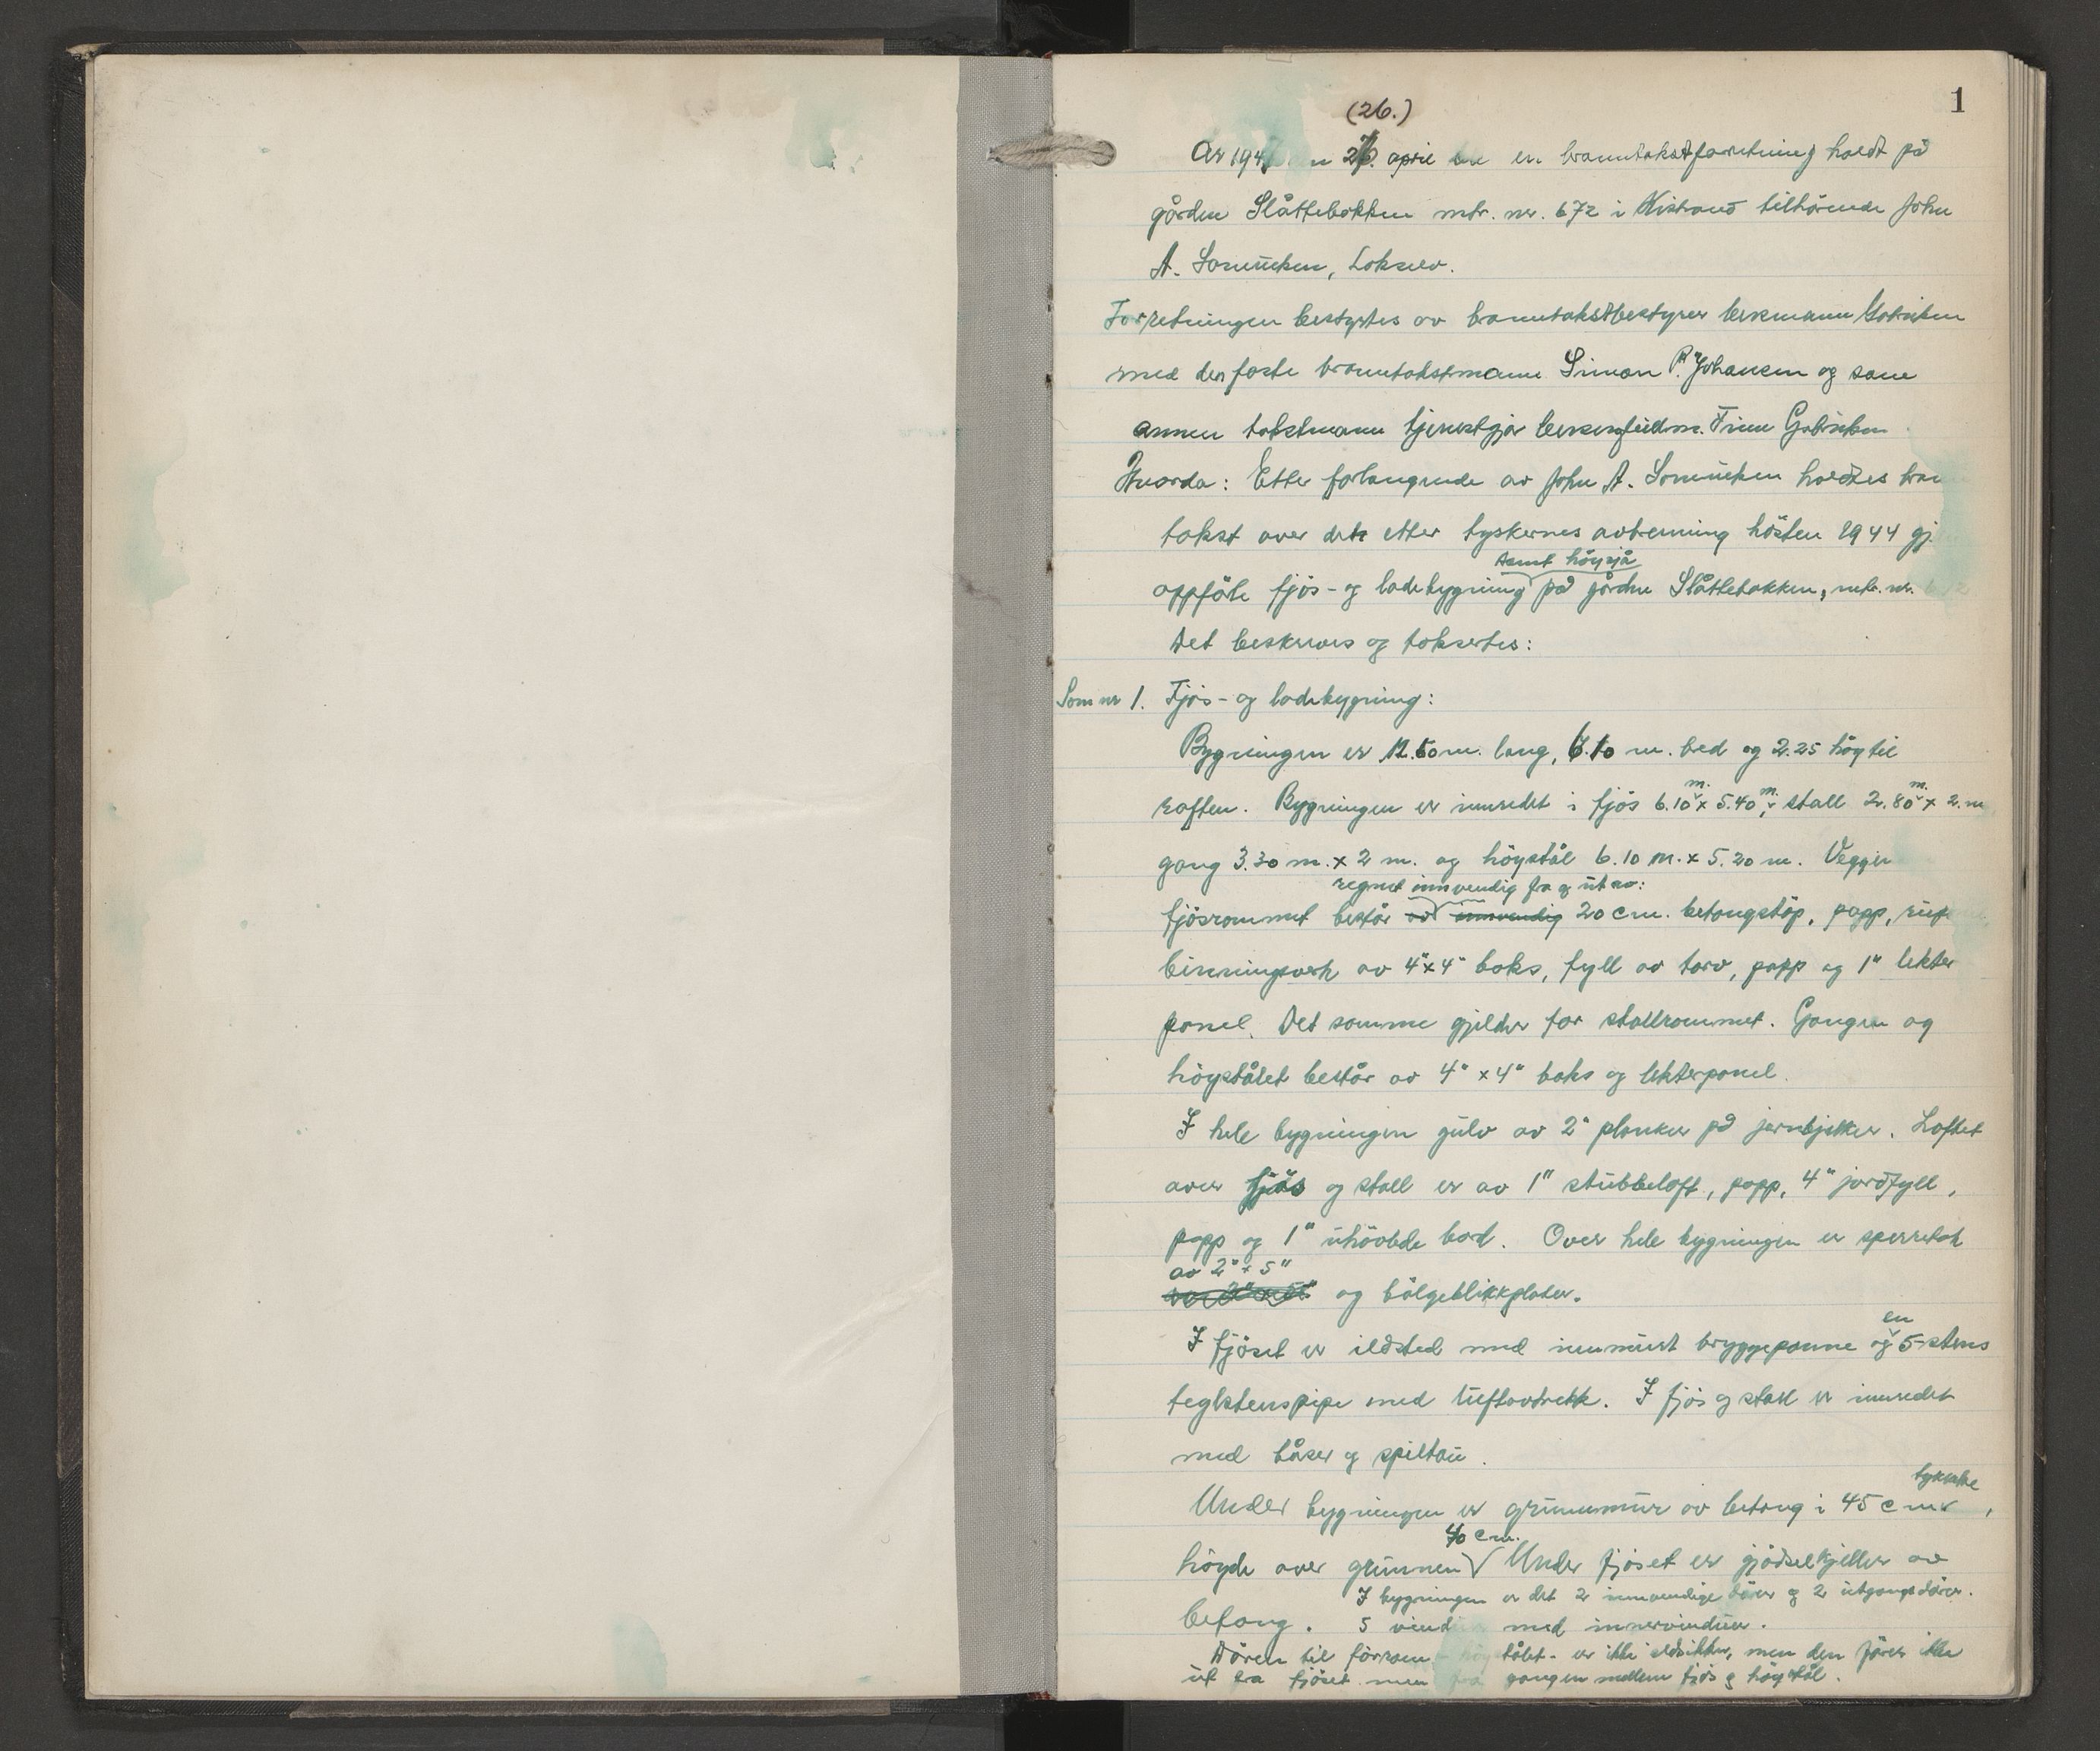 1
(26.)
År 194 n 26. april ble en branntakstforretning holdt på
gården Slåttebakken mtr. nr. 672 i Kistrand tilhörende John
A. , Lakselv.
Forretningen bestyrtes av branntakstbestyrer lensmann
med den faste branntakstmann Simon P. Johansen og som
annen takstmann tjenestgjör lensmfullm. Finn
Hvorda: Etter forlangende av John A. holdtes bran
takst over det etter tyskernes avbrenning hösten 1944 gj.
samt höysjå
oppförte fjös- og ladebygning på gården Slåttebakken, mtr. nr.
Det beskrives og takseres:
Som nr 1. Fjös- og ladebygning:
Bygningen er 12.60 m. lang, 6.10 m. bred og 2.25 höy til
raften. Bygningen er innredet i fjös 6.10 m. x 5.40 m., stall 2.80 m. x 2. m
gang 3.30 m. x 2 m. og höystål 6.10 m. x 5.20 m. Veggen
regnet innvendig fra og ut av:
fjösrommet består av innvendig 20 cm. betongstöp, papp,
binningsverk av 4" x 4" boks, fyll av torv, papp og 1" lekter
panel. Det samme gjelder for stallrommet. Gangen og
höystålet består av 4" x 4" boks og lekterpanel.
I hele bygningen gulv av 2" planker på jernbjelker. Loftet
over fjös og stall er av 1" stubbeloft, papp, 4" jordfyll,
papp og 1" uhövlede bord. Over hele bygningen er sperretak
av 2" x 5"
og bölgeblikkplater.
I fjöset er ildsted med innmurt bryggepanne og en 5-stens
teglstenspipe med luftavtrekk. I fjös og stall er innredet
med båser og spiltau.
Under bygningen er grunnmur av betong i 45 cm tykkelse,
höyde over grunnen 40 cm. Under fjöset er gjödselkjeller av
I bygningen er det 2 innvendige dörer og 2 utgangsdörer.
betong. 5 vind med innervinduer.
Dören til förrom - höystålet - er ikke ildsikker, men den förer ikke
ut fra fjöset men fra gangen mellem fjös og höystål.